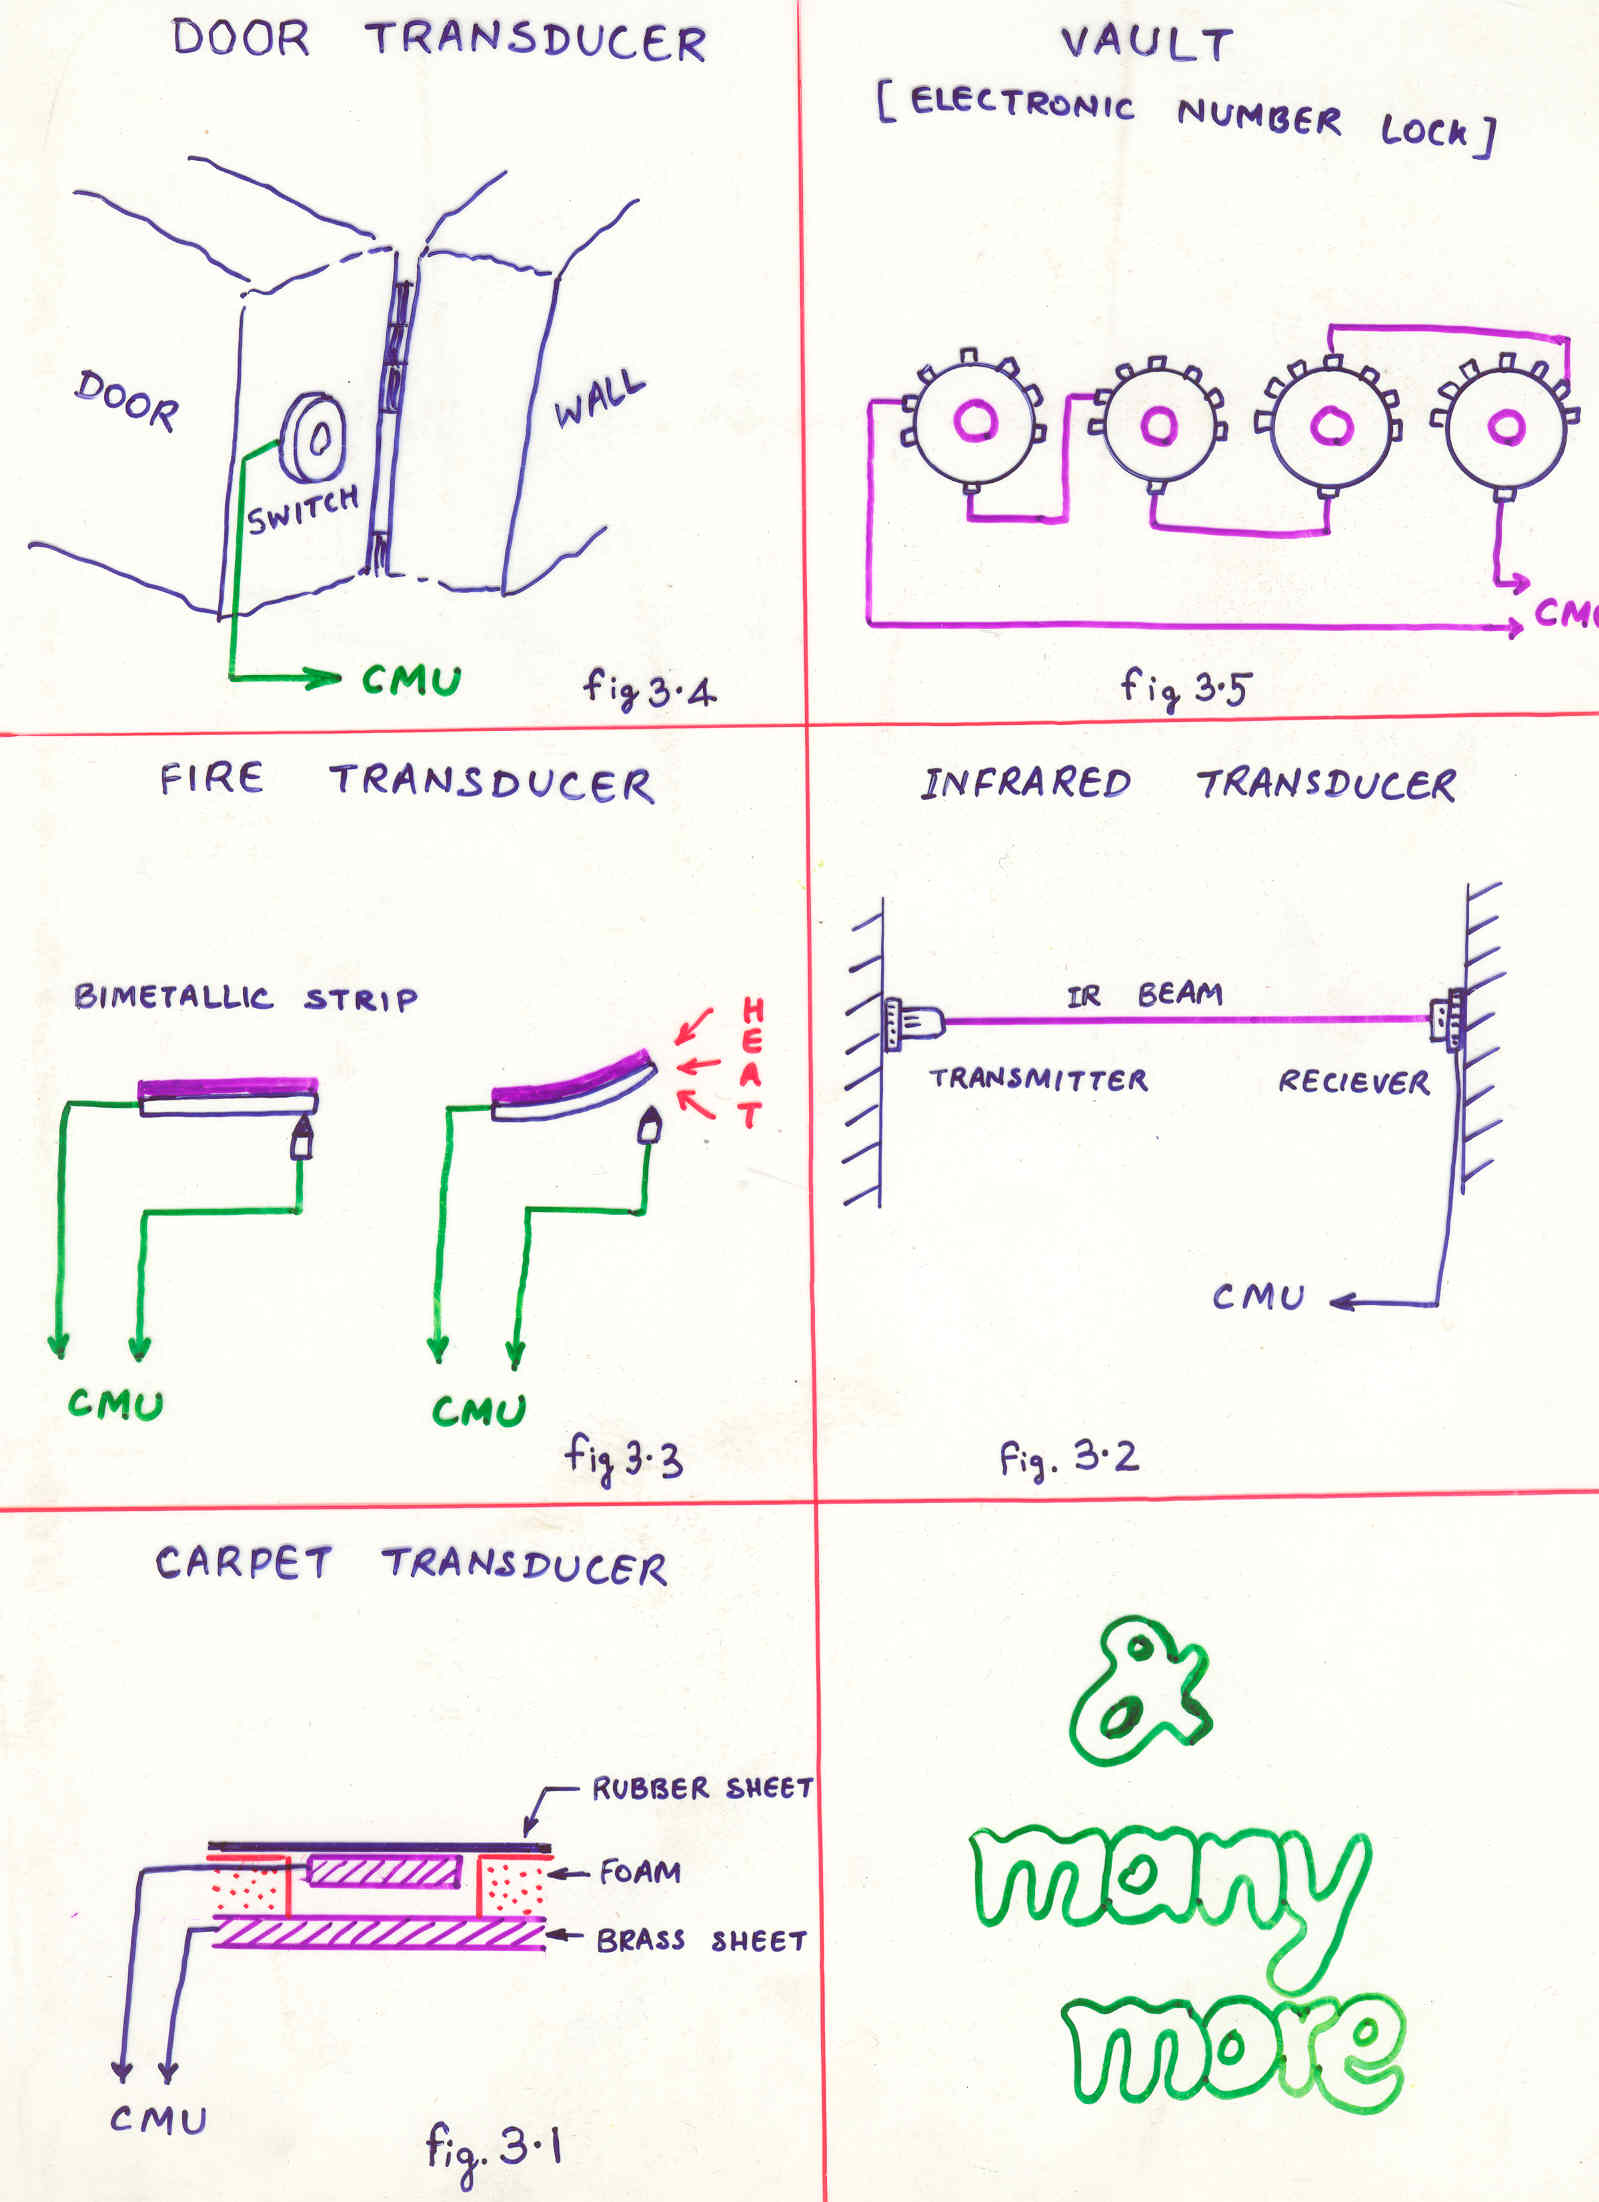 DOOR TRANSDUCER
DOOR
WALL
SWITCH
CMU
fig 3.4
VAULT
[ELECTRONIC NUMBER LOCK]
fig 3.5
FIRE TRANSDUCER
BIMETALLIC STRIP
HEAT
CMU
CMU
fig 3.3
INFRARED TRANSDUCER
IR BEAM
TRANSMITTER
RECIEVER
CMU
fig. 3.2
CARPET TRANSDUCER
RUBBER SHEET
FOAM
BRASS SHEET
CMU
fig. 3.1
&
many
more